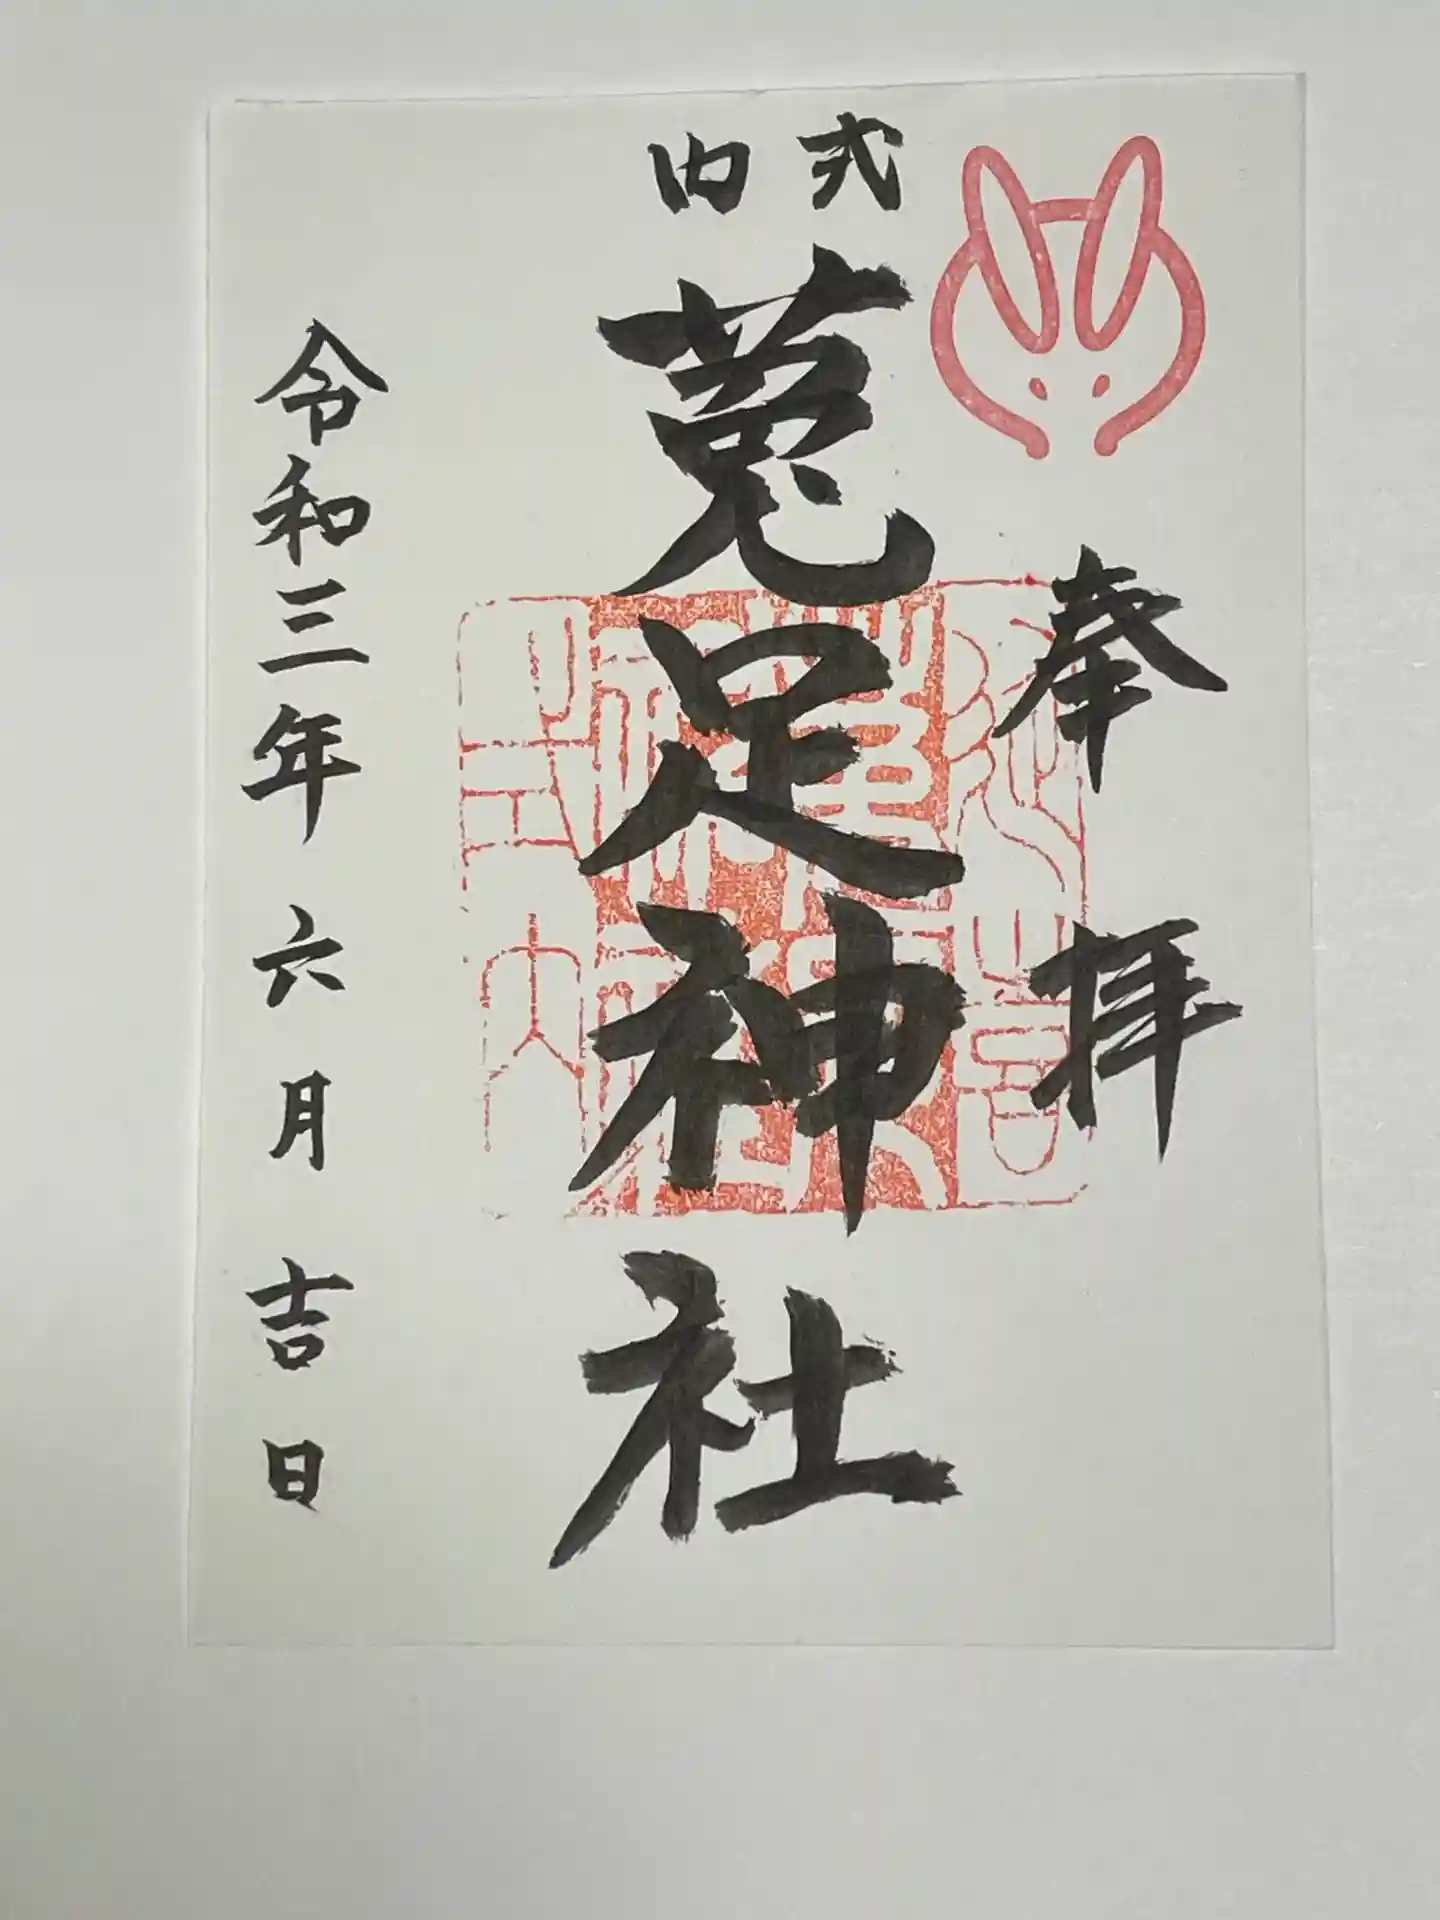 奉拝
式内
菟足神社
令和三年六月吉日